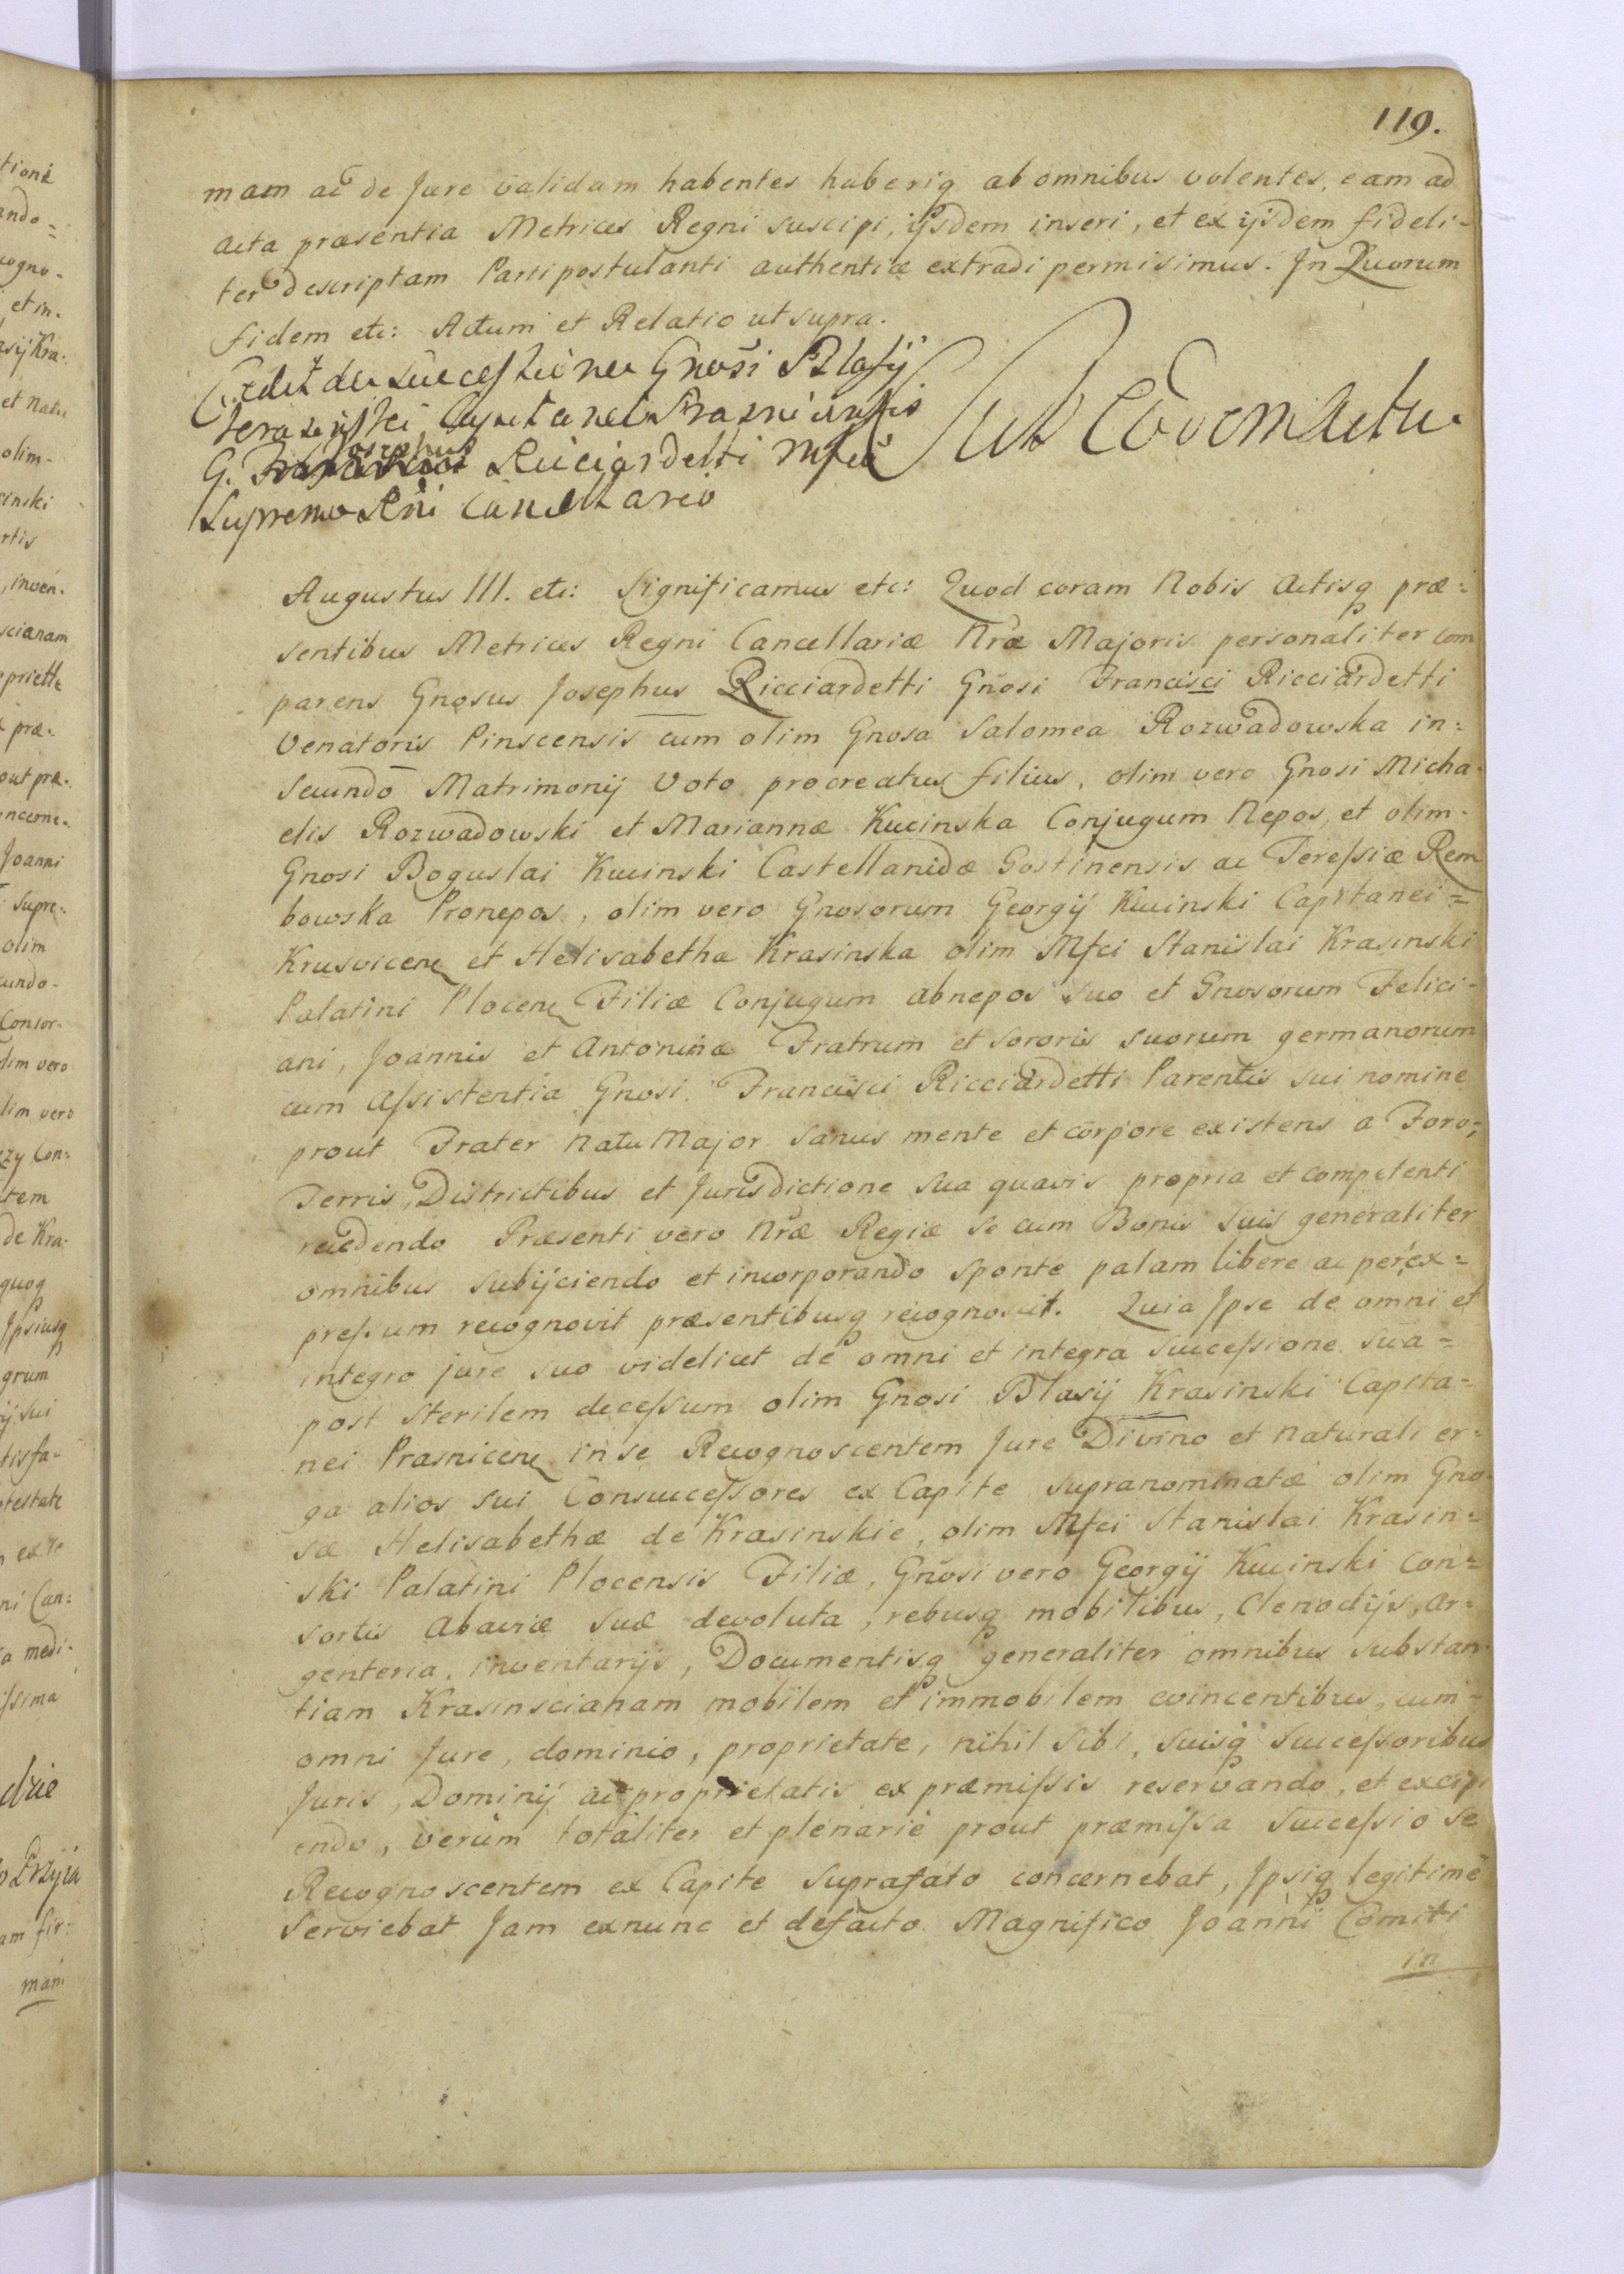 119.
mam ac de Jure validam habentes haberiq ab omnibus volentes, eam ad
acta præsentia Metrices Regni suscipi, ijsdem inseri, et ex ijsdem fideli-
ter descriptam Parti postulanti authenticæ extradi permisimus. In Quorum
fidem etc: Actum et Relatio ut supra.
Cedit de successione Gnosi Blasij
Krasinski Capitanei Prasnicensis
G. Josephus Ricciardetti Mfco
Supremo Rni Cancellario
Sub Eodem Actu.
Augustus III. etc: Significamus etc: Quod coram Nobis Actisq præ=
sentibus Metrices Regni Cancellariæ Nræ Majoris personaliter com
parens Gnosus Josephus Ricciardetti Gnosi Francisci Ricciardetti
Venatoris Pinscensis cum olim Gnosa Salomea Rozwadowska in=
secundo Matrimonij Voto procreatus filius, olim vero Gnosi Micha-
elis Rozwadowski et Mariannæ Kucinska Conjugum Nepos, et olim-
Gnosi Boguslai Kucinski Castellanidæ Gostinensis ac Teressiæ Rem
bowska Pronepos, olim vero Gnosorum Georgij Kucinski Capitanei=
Krusvicen et Helisabetha Krasinska olim Mfci Stanislai Krasinski
Palatini Plocen Filiæ Conjugum abnepos suo et Gnosorum Felici-
ani, Joannis et Antoninæ Fratrum et sororis suorum germanorum
cum Assistentia Gnosi Francisci Ricciardetti Parentis sui nomine
prout Frater Natu Major sanus mente et corpore existens a Foro,
Terris, Districtibus et Jurisdictione sua quavis propria et competenti
recedendo Præsenti vero Nræ Regiæ se cum Bonis Suis generaliter
omnibus subijciendo et incorporando sponte palam libere ac per ex=
pressum recognovit præsentibusq recognoscit. Quia Ipse de omni et
integro jure suo videlicet de omni et integra successione sua=
post sterilem decessum olim Gnosi Blasij Krasinski Capita=
nei Prasnicen in se Recognoscentem Jure Divino et naturali er=
ga alios sui Consuccessores ex Capite supranominatæ olim Gno-
sæ Helisabethæ de Krasinskie, olim Mfci Stanislai Krasin=
ski Palatini Plocensis Filiæ, Gnosi vero Georgij Kucinski con=
sortis Abaviæ suæ devoluta, rebusq mobilibus, Clenodijs, Ar=
genteria, inventarijs, Documentisq generaliter omnibus substan
tiam Krasinscianam mobilem et immobilem evincentibus, cum=
omni Jure, dominio, proprietate, nihil sibi, suisq successoribus
Juris, Dominij ac proprietatis ex præmissis reservando, et excipi
endo, verum totaliter et plenarie prout præmissa successio se
Recognoscentem ex Capite suprafato concernebat, Ipsiq legitime
serviebat Jam exnunc et defacto Magnifico Joanni Comiti
in